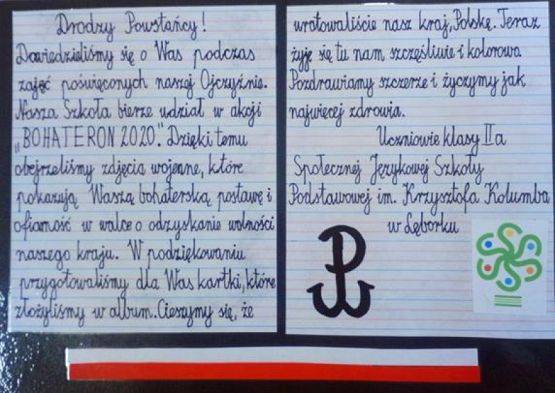 Drodzy Powstańcy!
Dowiedzieliśmy się o Was podczas
zajęć poświęconych naszej Ojczyźnie.
Nasza Szkoła bierze udział w akcji
„BOHATERON 2020". Dzięki temu
obejrzeliśmy zdjęcia wojenne, które
pokazują Waszą bohaterską postawę i
ofiarność w walce o odzyskanie wolności
naszego kraju. W podziękowaniu
przygotowaliśmy dla Was kartki, które
złożyliśmy w album. Cieszymy się, że
uratowaliście nasz kraj, Polskę. Teraz
żyje się tu nam szczęśliwie i kolorowo.
Pozdrawiamy szczerze i życzymy jak
najwięcej zdrowia.
Uczniowie klasy II a
Społecznej Językowej Szkoły
Podstawowej im. Krzysztofa Kolumba
w Lęborku